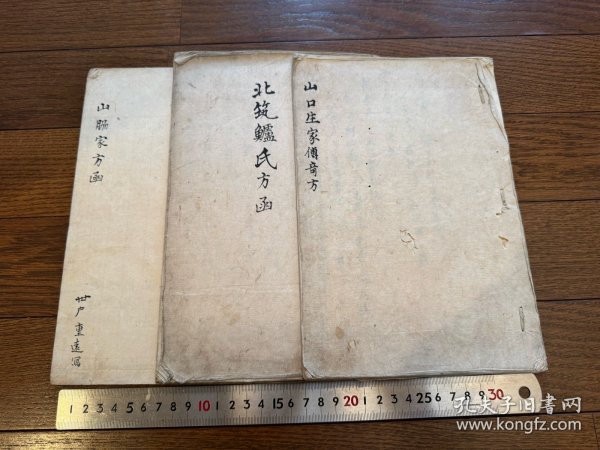 山口庄家傳奇方
北筑鱸氏方函
山脇家方函
重遠寫
1 2 3 4 5 6 7 8 9 10 1 2 3 4 5 6 7 8 9 20 1 2 3 4 25 6 7 8 9 30
孔夫子旧书网
www.kongfz.com